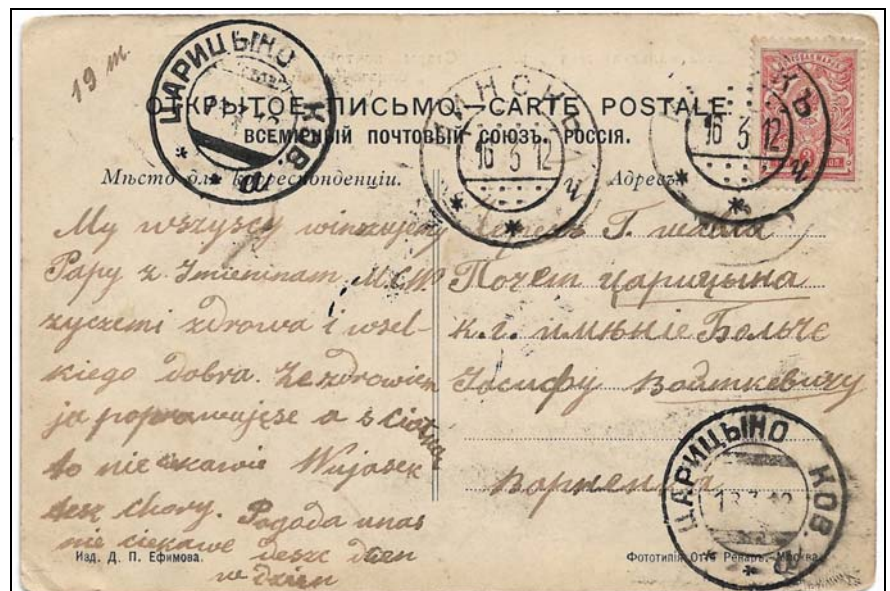 19 m.
ЦАРИЦЫНО КОВ.
ОТКРЫТОЕ ПИСЬМО.—CARTE POSTALE
ВСЕМІРНЫЙ ПОЧТОВЫЙ СОЮЗЪ. РОССІЯ.
16 3 12
16 3 12
Мѣсто для корреспонденціи.
Адресъ.
My wszyscy winszujemy
Papy z Imieninam
zyczemi zdrowa i wsel-
kiego dobra. Ze zdrowiem
ja poprawujęse a s
to nie Wujasek
tesz chory. Pogoda unas
nie ciekawe deszc dzen
w dzien
Г.
Почет Царицына
к.г. имѣніе
Іосифу Войткевичу
ЦАРИЦЫНО КОВ.
Изд. Д. П. Ефимова.
Фототипія Отто Ренаръ, Москва.